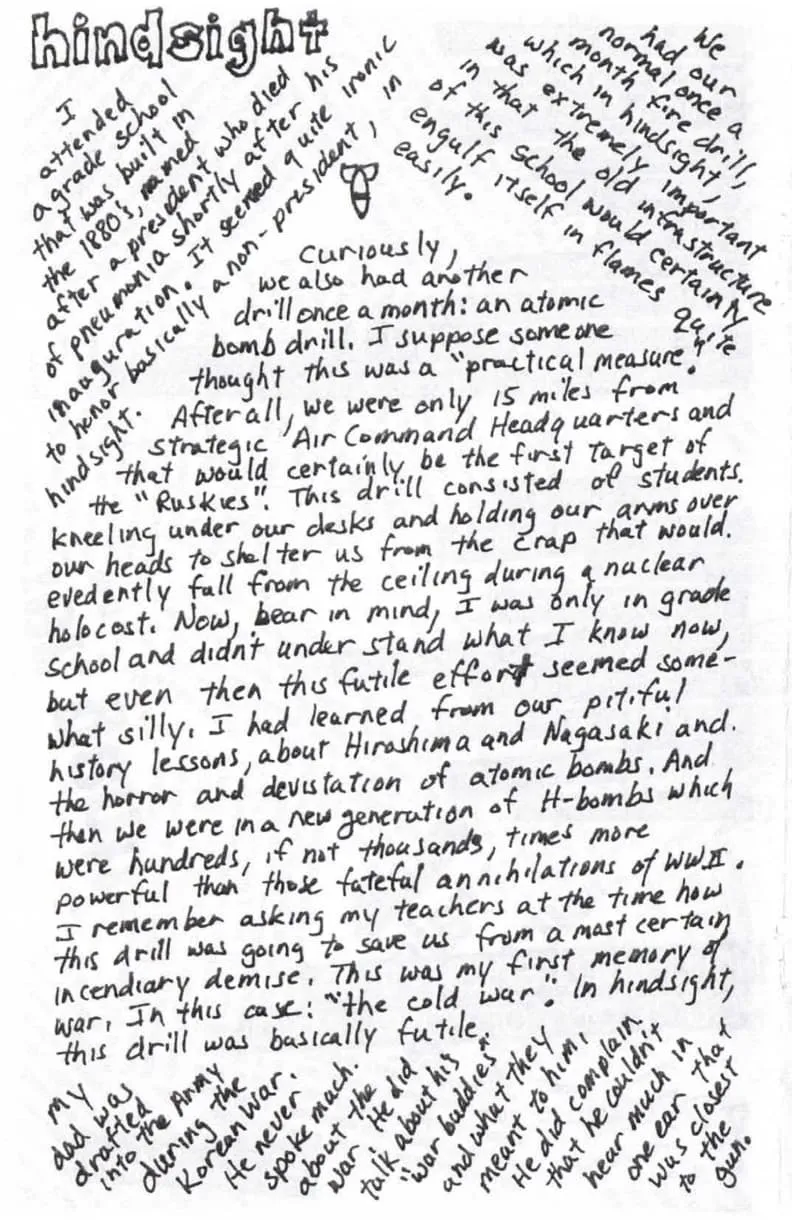 hindsight
I
attended
a grade school
that was built in
the 1880's, named
after a president who died
of pneumonia shortly after his
inauguration. It seemed quite ironic
to honor basically a non-president, in
hindsight.
We
had our
normal once a
month fire drill,
which in hindsight,
was extremely important
in that the old infrastructure
of this school would certainly
engulf itself in flames quite
easily.
Curiously,
we also had another
drill once a month: an atomic
bomb drill. I suppose someone
thought this was a "practical measure."
After all, we were only 15 miles from
Strategic Air Command Headquarters and
that would certainly be the first target of
the "Ruskies". This drill consisted of students.
kneeling under our desks and holding our arms over
our heads to shelter us from the crap that would.
evedently fall from the ceiling during a nuclear
holocost. Now, bear in mind, I was only in grade
school and didn't under stand what I know now,
but even then this futile effort seemed some-
what silly. I had learned from our pitiful
history lessons, about Hiroshima and Nagasaki and.
the horror and devistation of atomic bombs. And
then we were in a new generation of H-bombs which
were hundreds, if not thousands, times more
powerful than those fateful annihilations of WWII.
I remember asking my teachers at the time how
this drill was going to save us from a most certain
incendiary demise. This was my first memory of
war. In this case: "the cold war". In hindsight,
this drill was basically futile.
My
dad was
drafted
into the Army
during the
Korean War.
He never
spoke much.
about the
war. He did
talk about his
"war buddies"
and what they
meant to him.
He did complain.
that he couldn't
hear much in
one ear that
was closest
to the
gun.